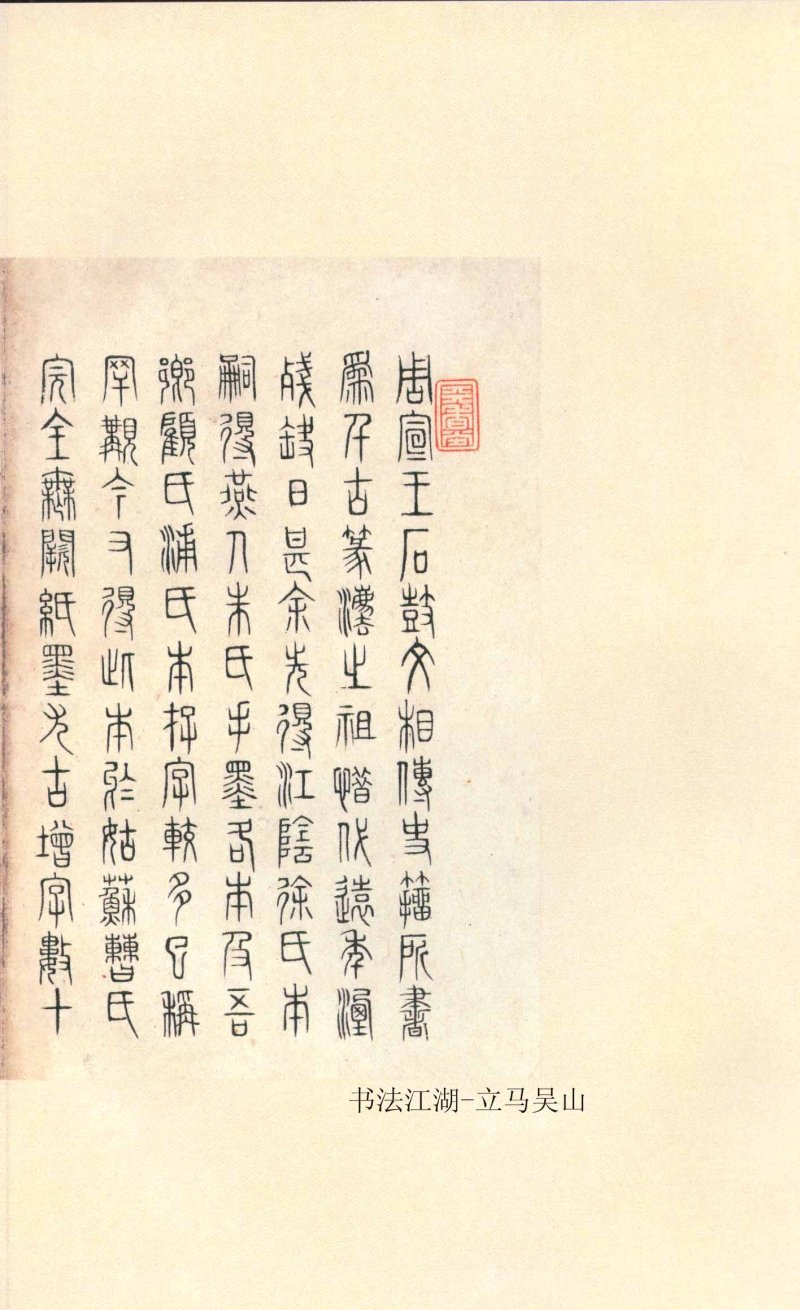 周宣王石鼓文相傳史籀所書
為千古篆法之祖惜代遠年湮
殘缺日甚余先得江陰徐氏本
嗣得燕人朱氏手墨各本及吾
鄉顧氏浦氏本存字較多已稱
罕觀今又得此本於姑蘇曹氏
完全無闕紙墨尤古增字數十
书法江湖-立马吴山